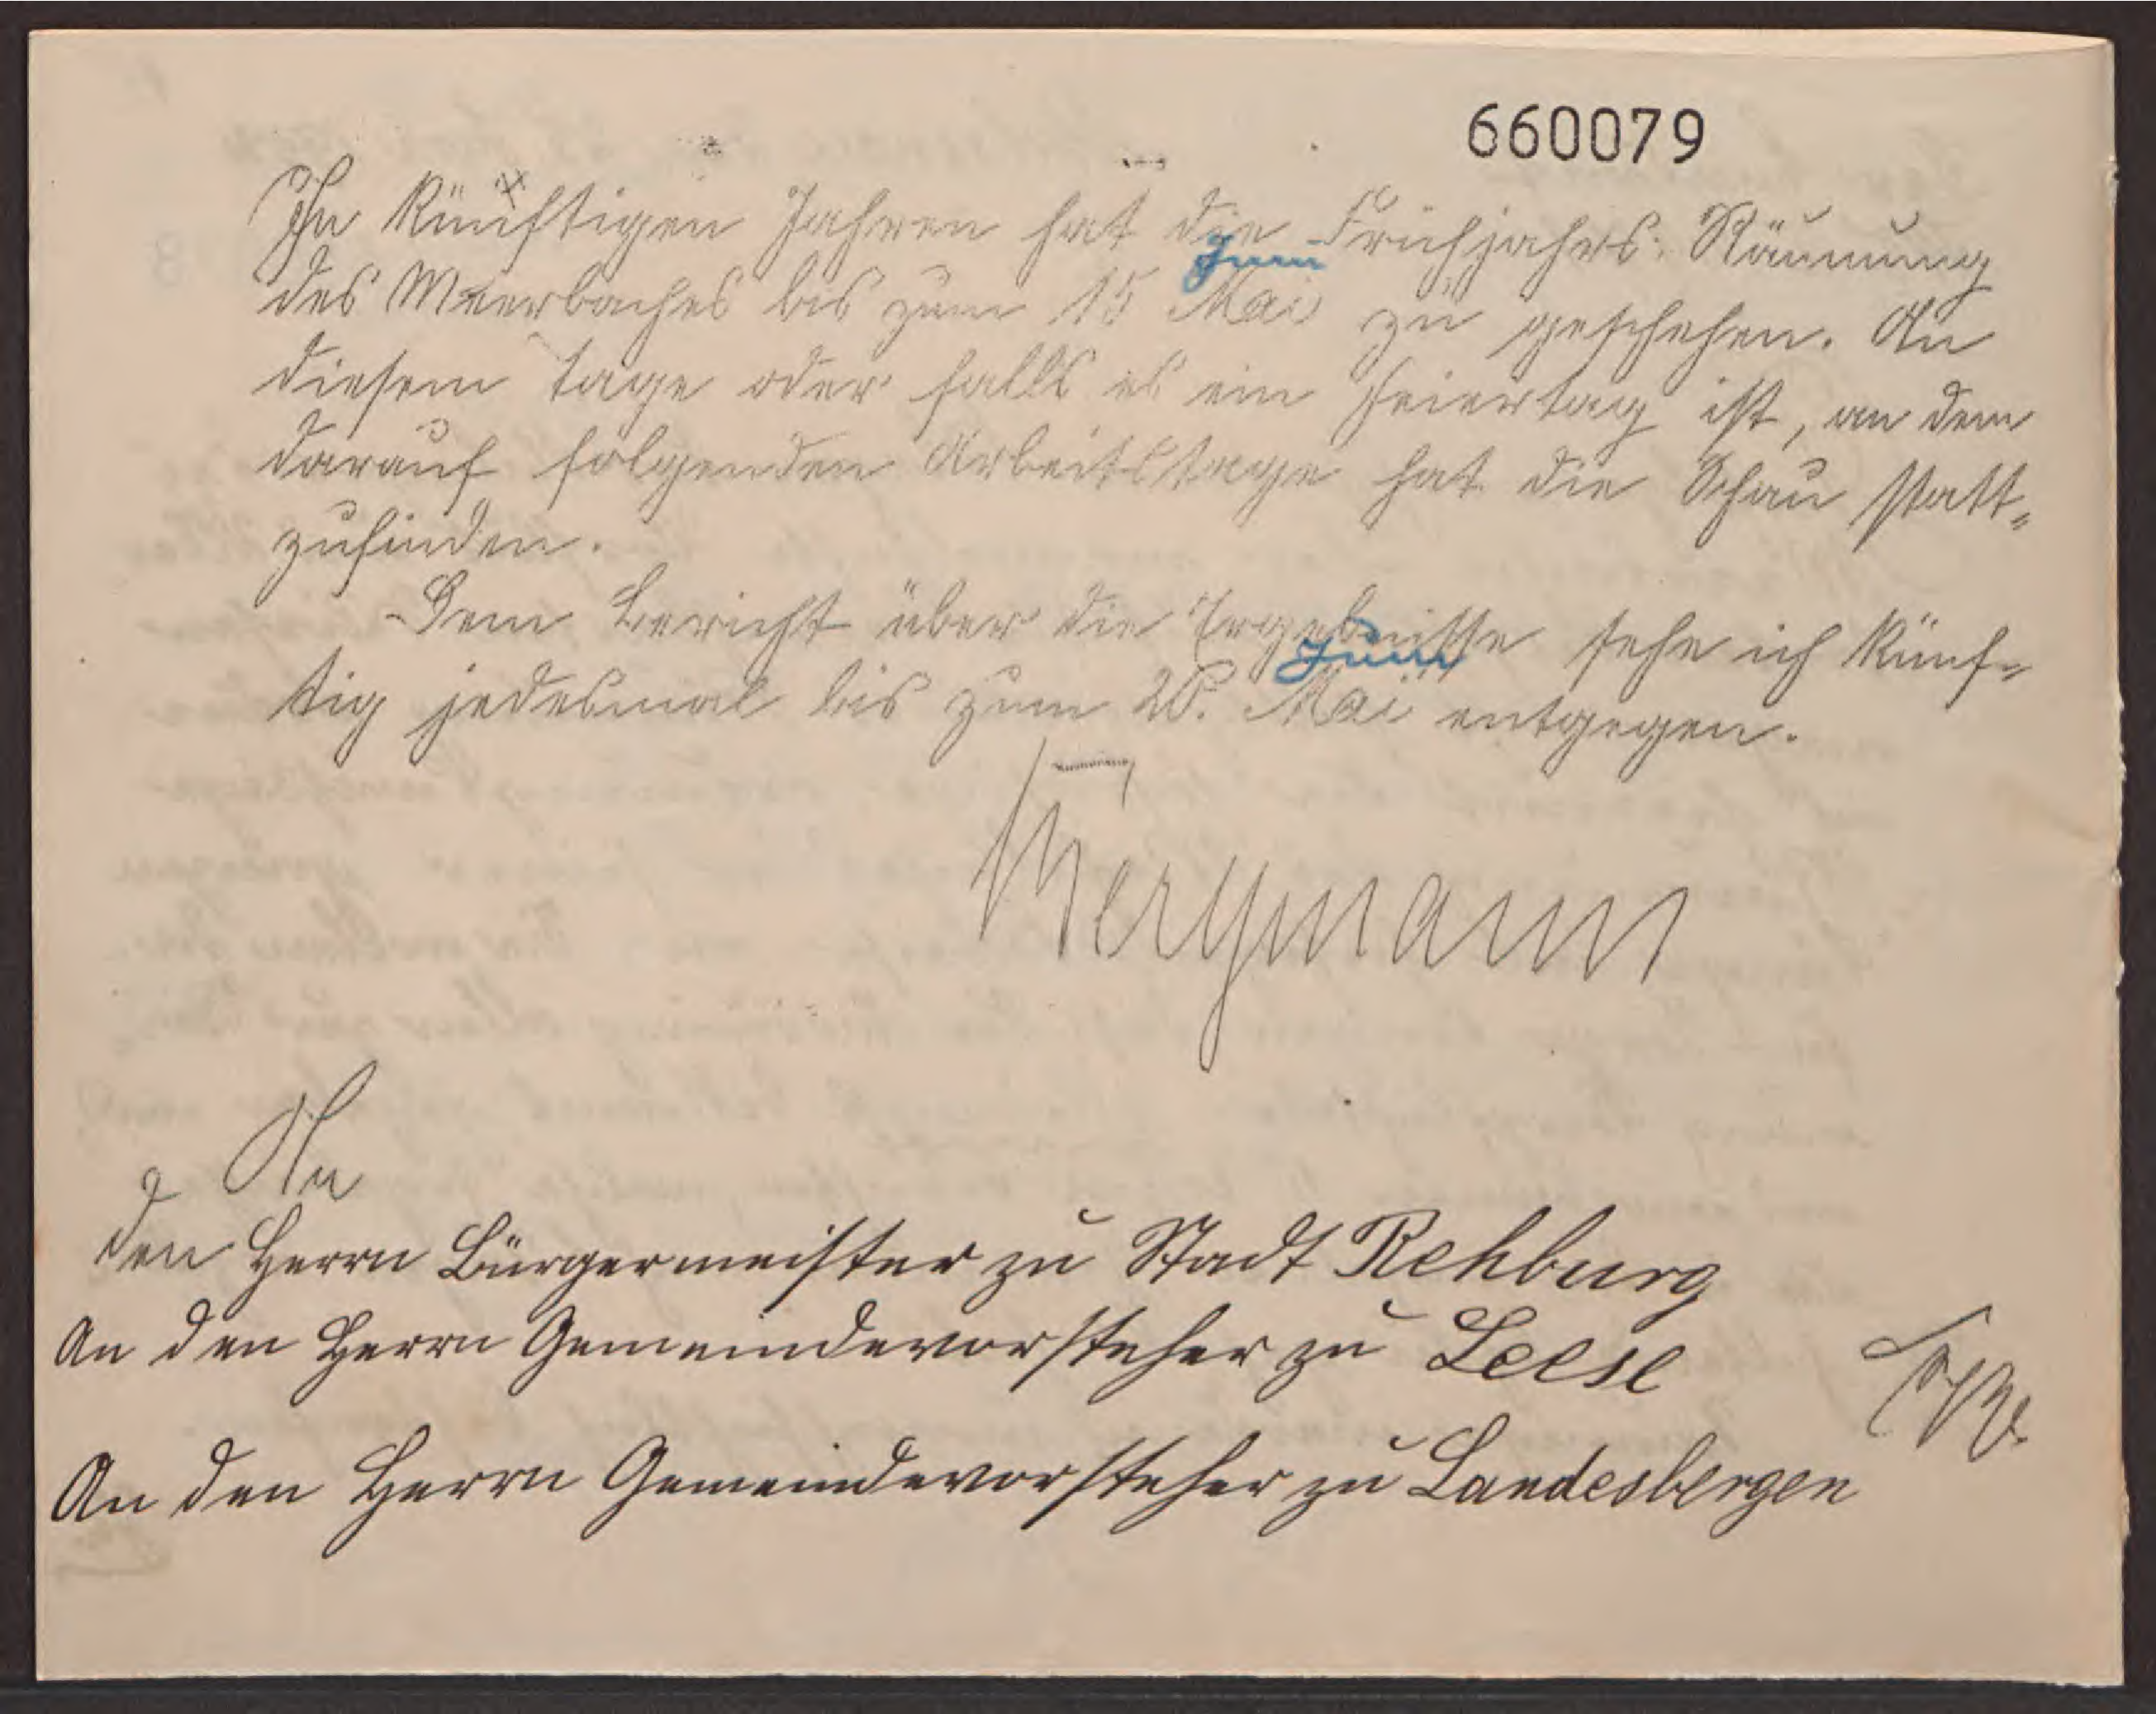 660079
In künftigen Jahren hat die Frühjahrs-Räumung
Juni
des Meerbaches bis zum 15 Mai zu geschehen. An
diesem Tage oder falls es ein Feiertag ist, an dem
darauf folgenden Arbeitstage hat die Schau statt-
zufinden.
Dem Bericht über die Ergebnisse sehe ich künf-
Juni
tig jedesmal bis zum 20. Mai entgegen.
Bergmann
An
den Herrn Bürgermeister zu Stadt Rehburg
An den Herrn Gemeindevorsteher zu Leese
An den Herrn Gemeindevorsteher zu Landesbergen